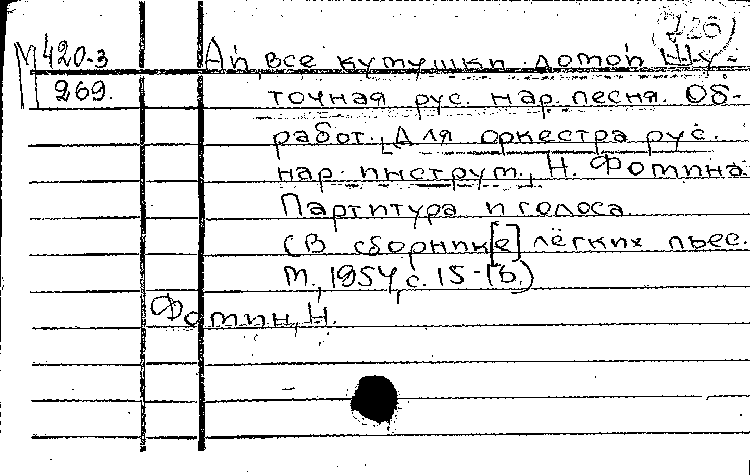 726
М 420-3
269.
Ай, все кумушки домой Шу-
точная рус. нар. песня. Об-
работ. для оркестра рус.
нар. инструм., Н. Фомина
Партитура и голоса
(В сборник[е] лёгких пьес.
М., 1954, с. 15-16.)
Фомин, Н.